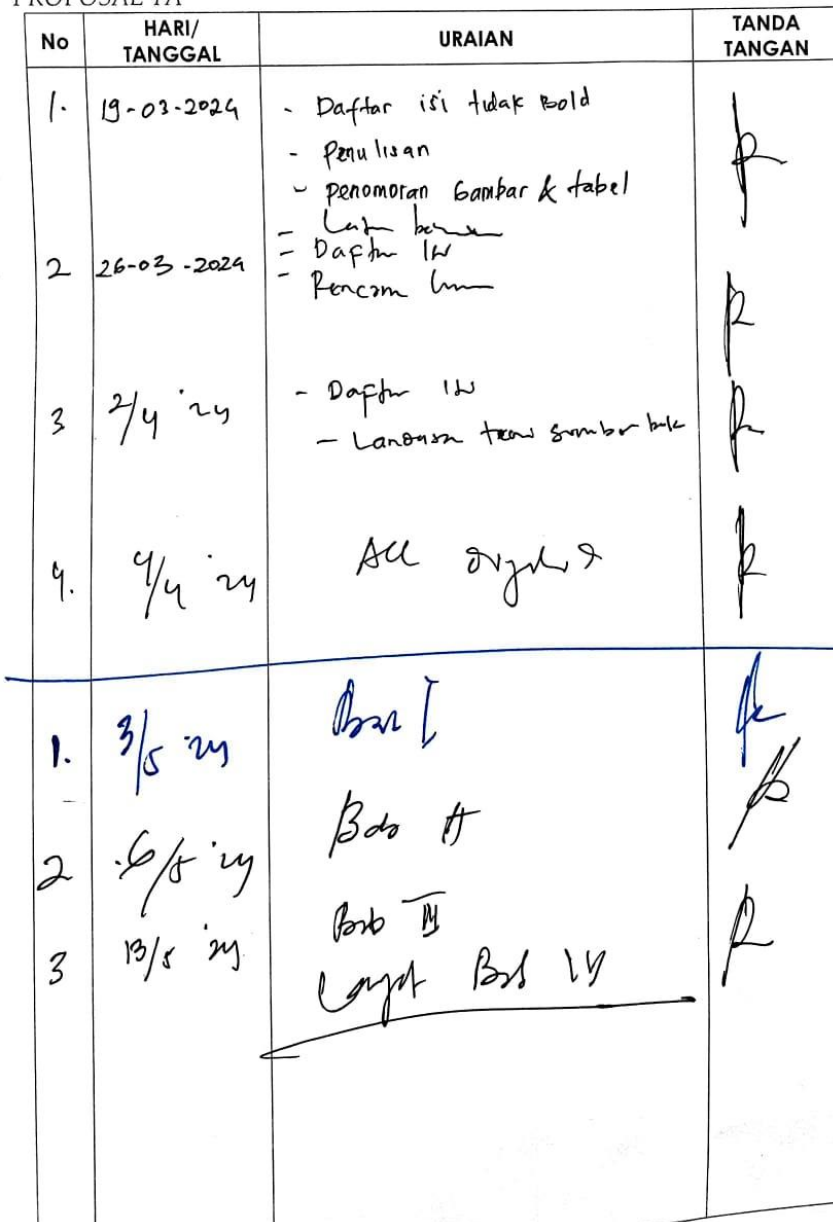 PROPOSAL TA
No HARI/ TANGGAL URAIAN TANDA TANGAN
1. 19-03-2024 - Daftar isi tidak Bold
- Penulisan
- Penomoran Gambar & tabel
2 26-03-2024 - Daftar
- Rencana
3 2/4 '24 - Daftar
- Landasan teori sumber
4. 4/4 '24 Acc
1. 3/5 '24 Bab I
2 6/5 '24 Bab II
3 13/5 '24 Bab III
Bab IV